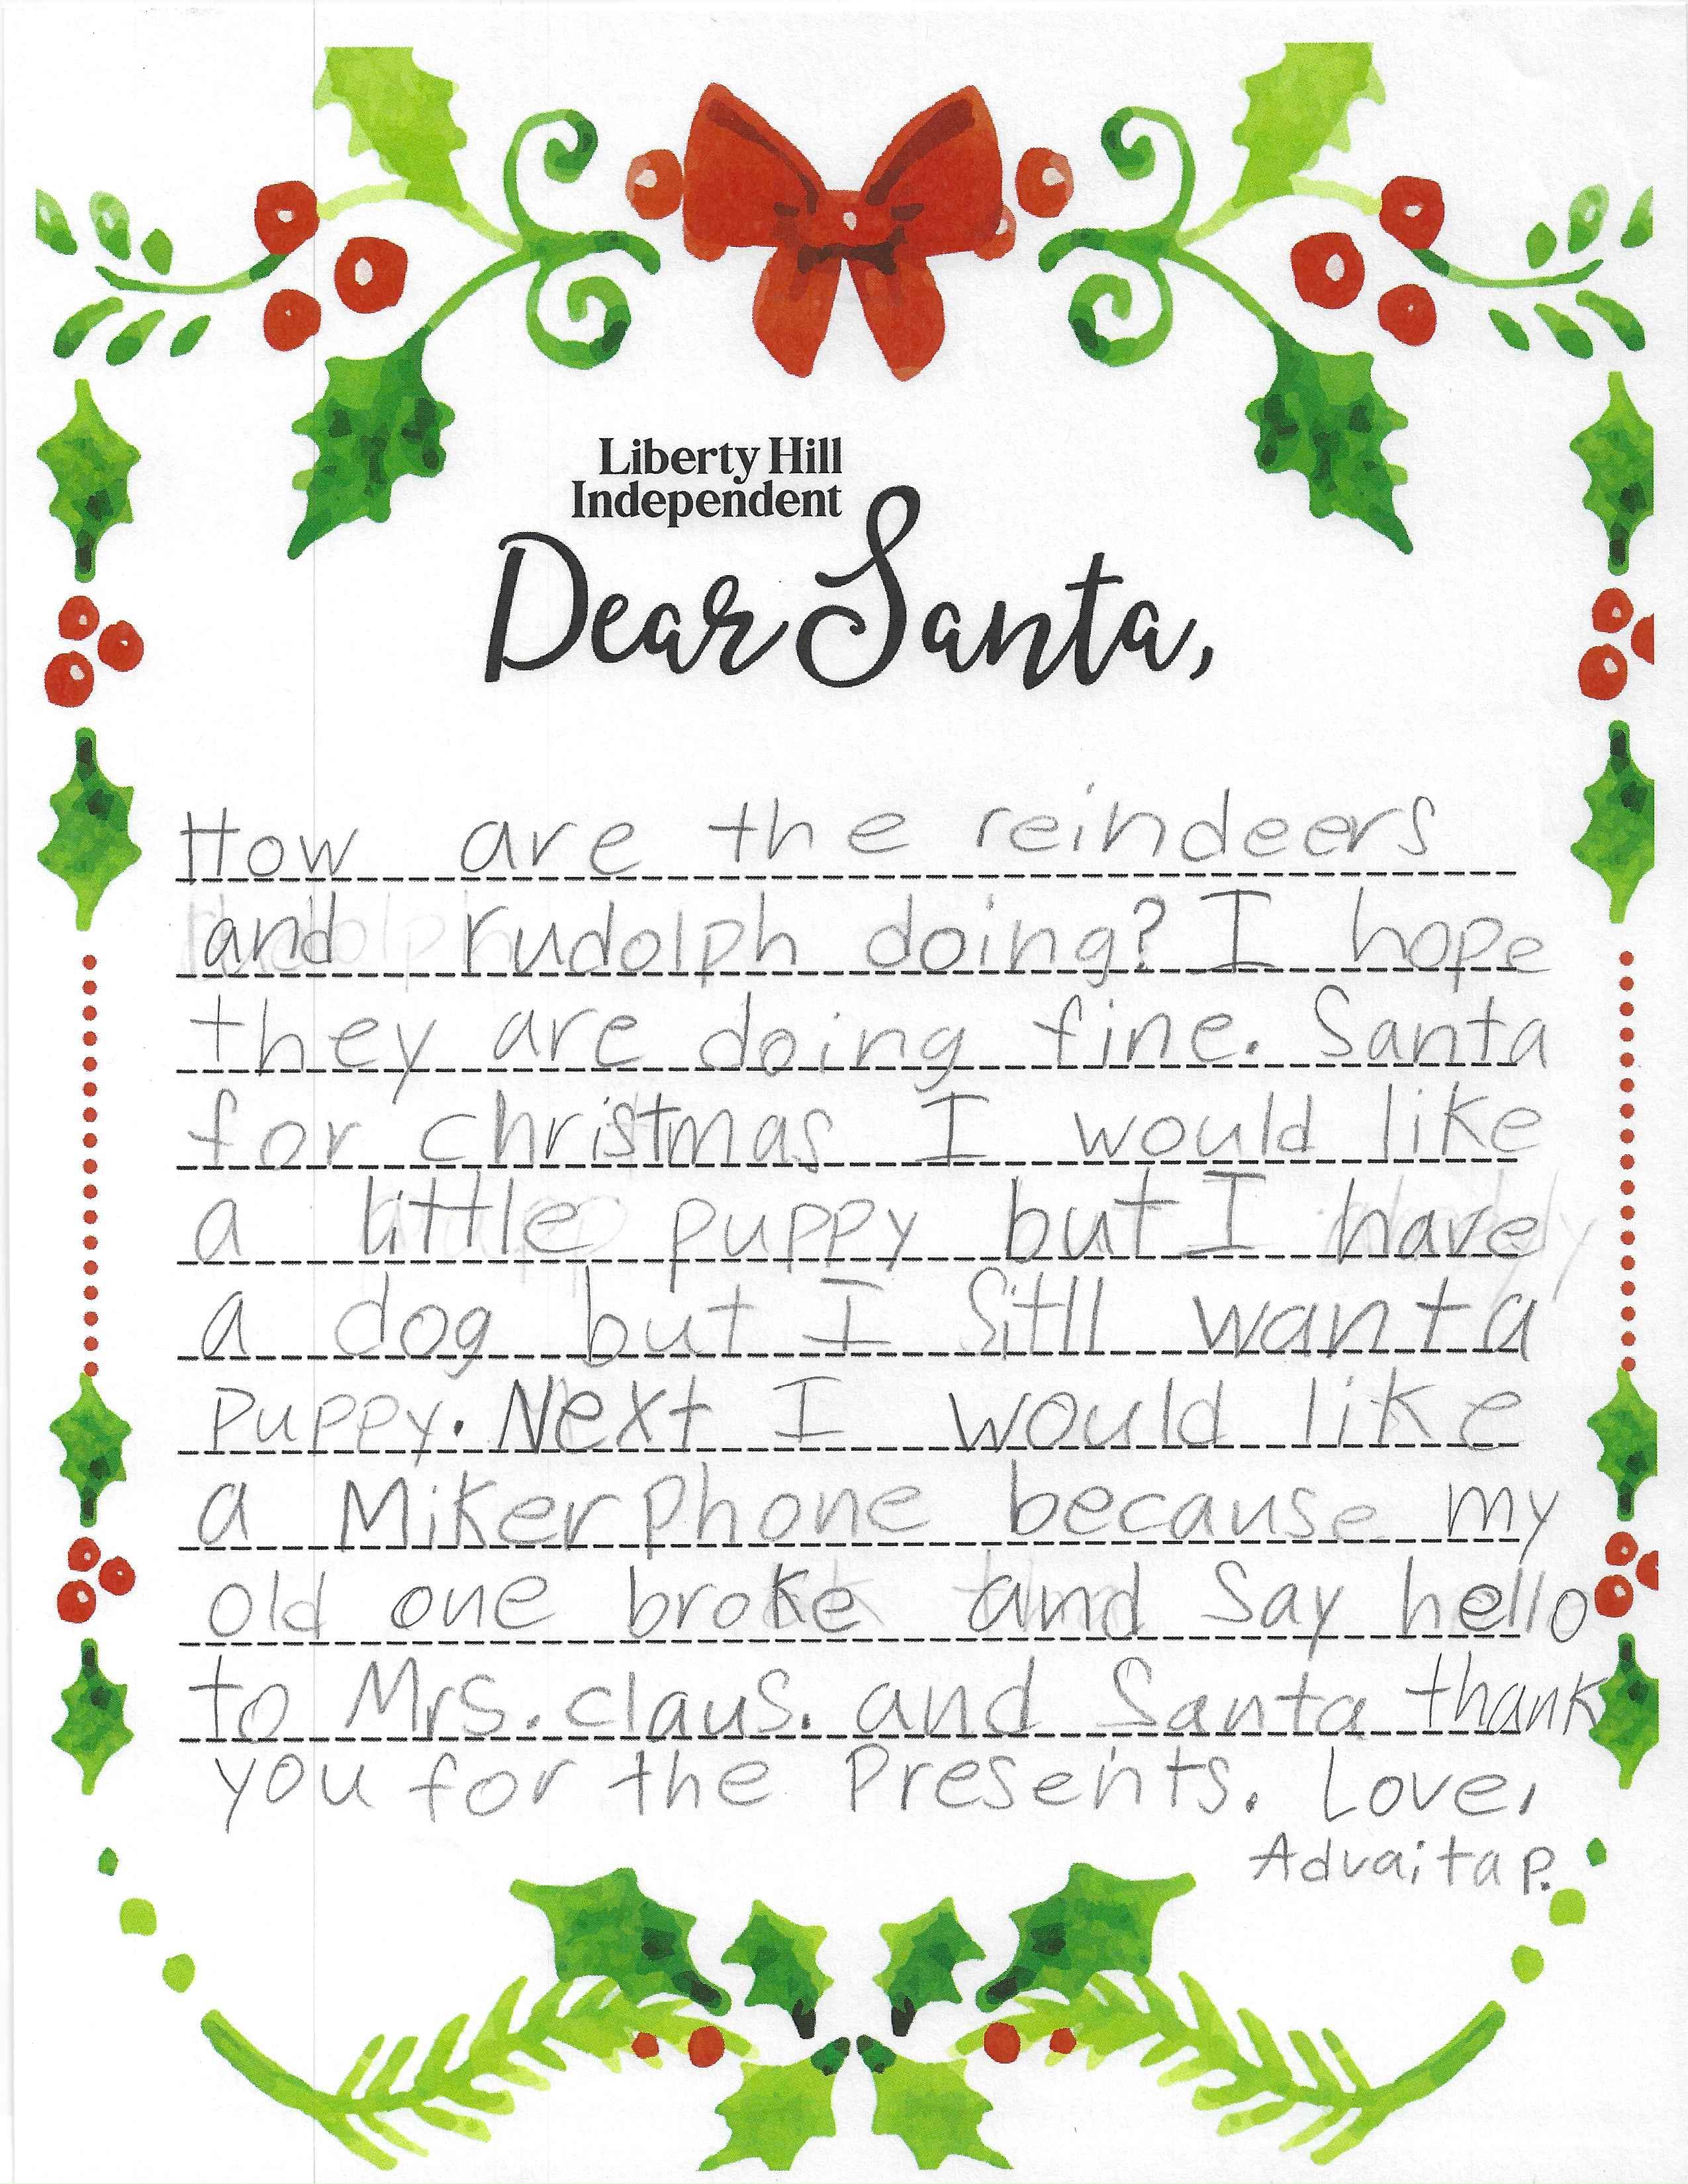 Liberty Hill
Independent
Dear Santa,
How are the reindeers
and rudolph doing? I hope
they are doing fine. Santa
for christmas I would like
a little puppy but I have
a dog but I Sitll want a
puppy. Next I would like
a Mikerphone because my
old one broke and Say hello
to Mrs. claus. and Santa thank
you for the Presents. Love,
Advaita p.